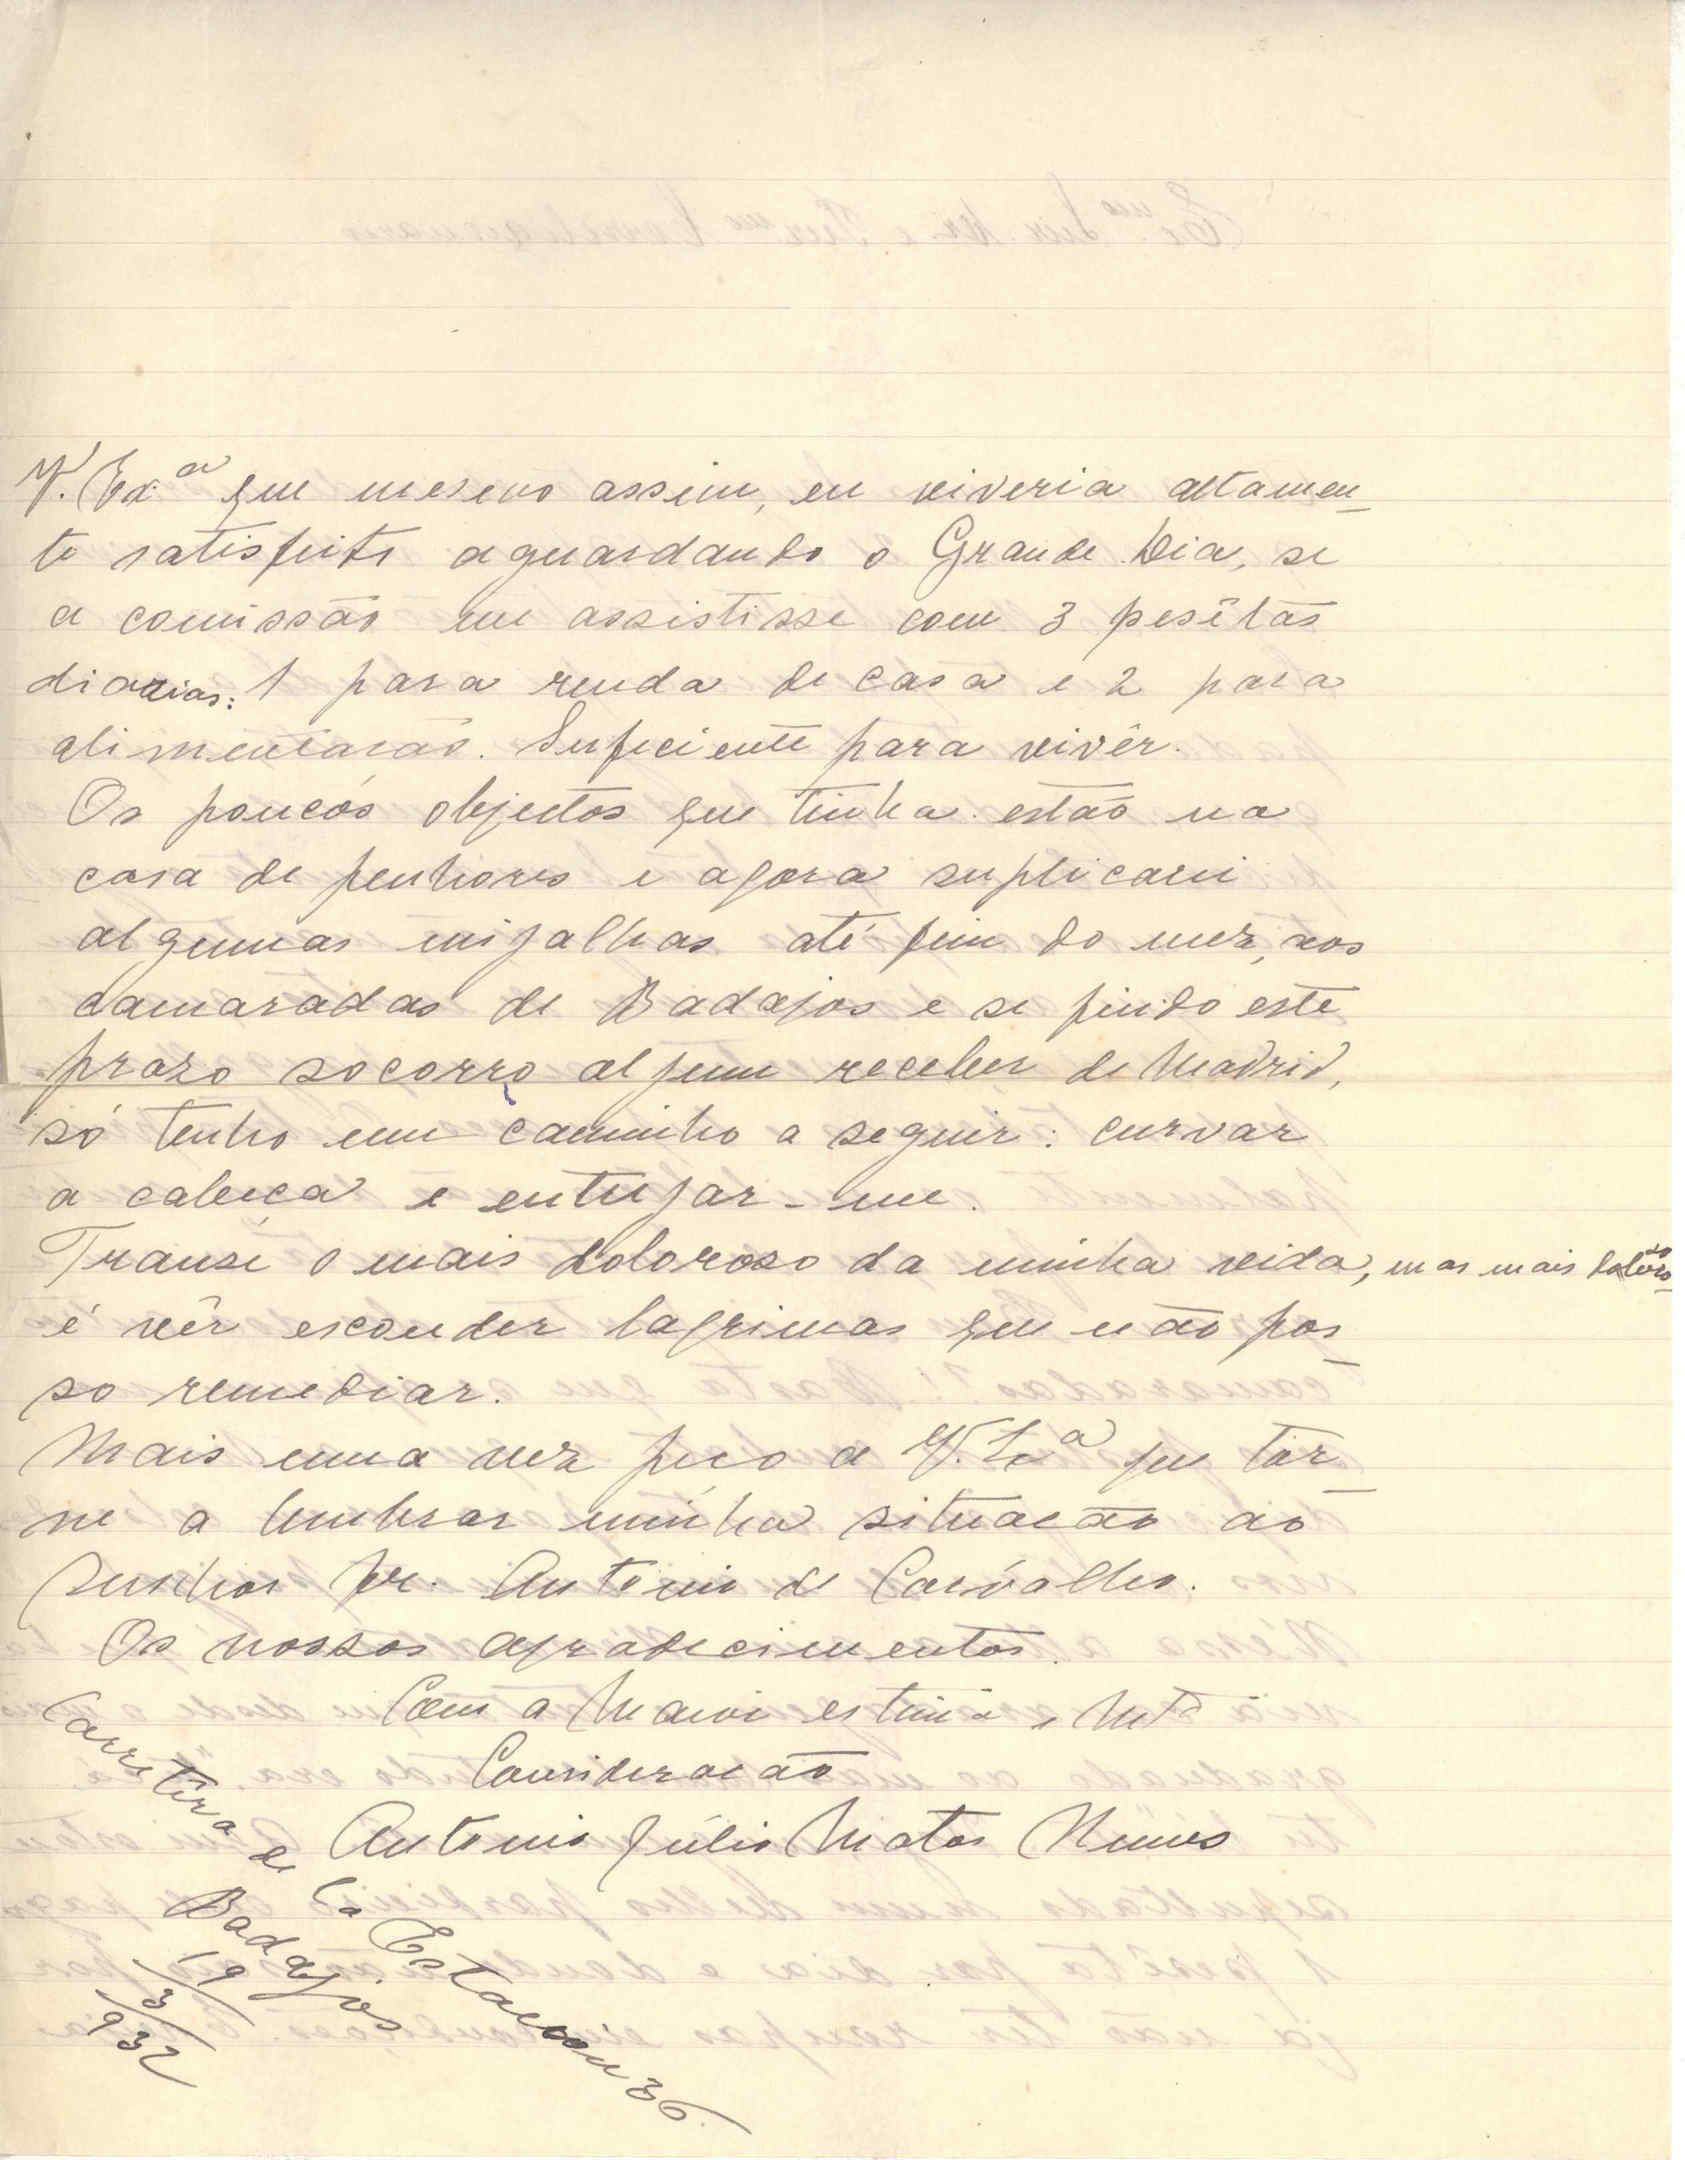 V. Ex.ª que mesmo assim, eu viveria altamen-
te satisfeito aguardando o Grande Dia, se
a comissão me assistisse com 3 pesêtas
diarias: 1 para renda de casa e 2 para
alimentacão. Suficiente para vivêr.
Os poucos objectos que tinha estão na
casa de penhores e agora suplicarei
algumas migalhas até fim do mez, aos
camaradas de Badajos e se findo este
prazo socorro algum receber de Madrid,
só tenho um caminho a seguir: curvar
a cabeça e entregar-me.
Transe o mais doloroso da minha vida, mas mais doloroso
é vêr esconder lagrimas que não pos-
so remediar.
Mais uma vez peço a V. Ex.ª que tor-
ne a lembrar minha situacão ao
Senhor Dr. Antonio de Carvalho.
Os nossos agradecimentos.
Com a Maior estima e Mtª
Consideracão
Antonio Júlio Matos Nunes
Carretêra de la Estacion 36
Badajos
19/3/932